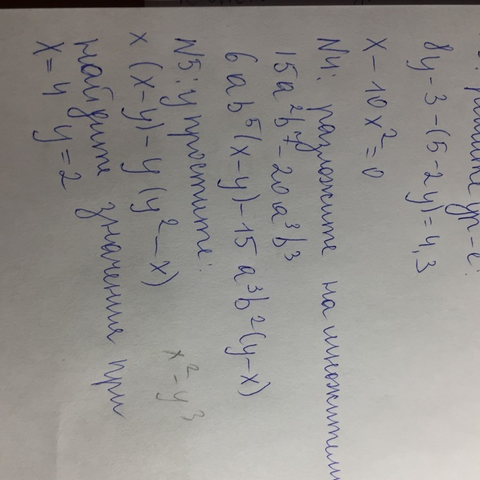 решите ур-е:
8y-3-(5-2y)=4,3
x-10x²=0
N4: разложите на множители
15a²b⁴-20a³b³
6ab⁵(x-y)-15a³b²(y-x)
N5: упростите:
x(x-y)-y(y²-x)
x²-y³
найдите значение при
x=4 y=2